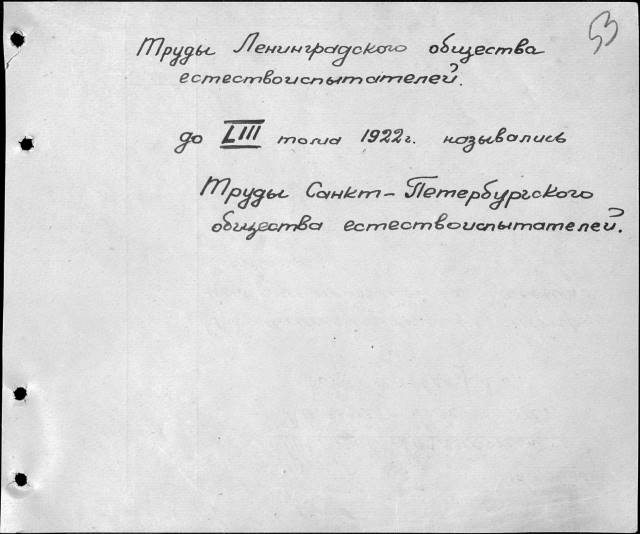 53
Труды Ленинградского общества
естествоиспытателей.
до LIII тома 1922г. назывались
Труды Санкт-Петербургского
общества естествоиспытателей.